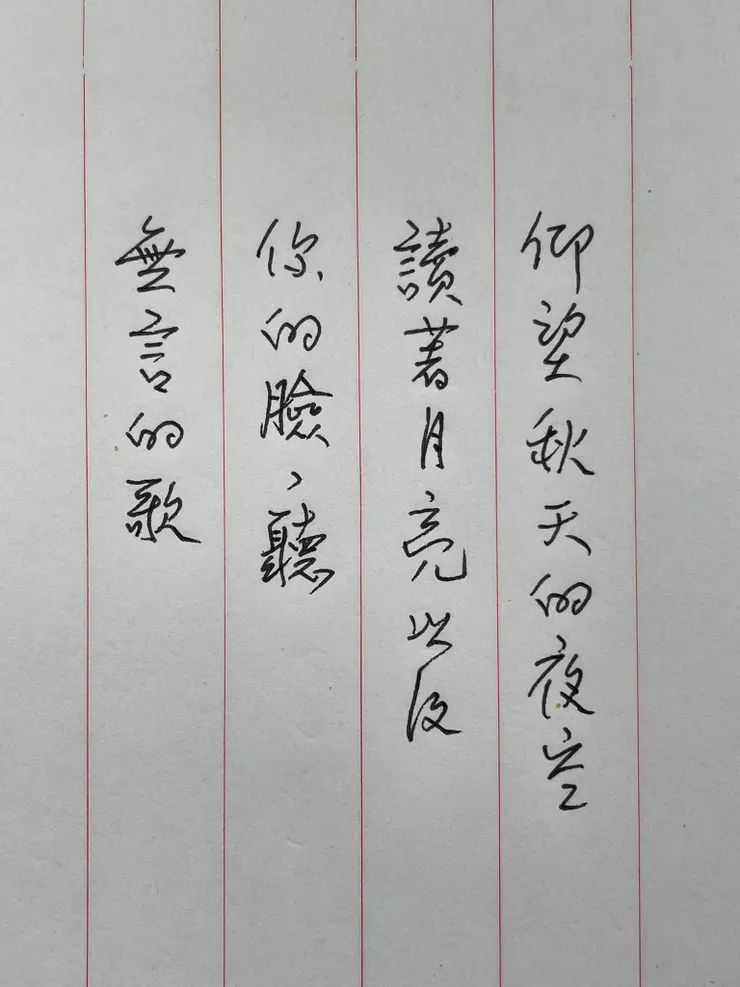 仰望秋天的夜空
讀著月亮以及
你的臉、聽
無言的歌